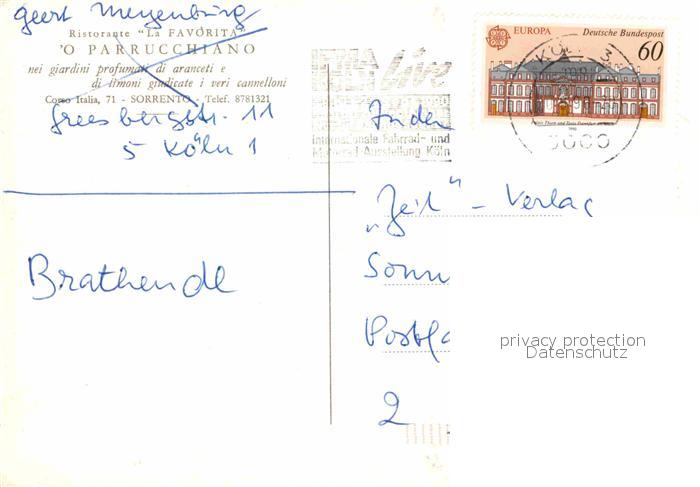 geert Meyenburg
Ristorante "La FAVORITA"
'O PARRUCCHIANO
nei giardini profumati di aranceti e
di limoni giudicate i veri cannelloni
Corso Italia, 71 - SORRENTO - Telef. 8781321
11
5 Köln 1
Brathendl
EUROPA
Deutsche Bundespost
60
Live
Internationale Fahrrad- und
Motorrad-Ausstellung Köln
5000
An den
"Zeit" - Verlag
Sonn
Postfa
2
privacy protection
Datenschutz